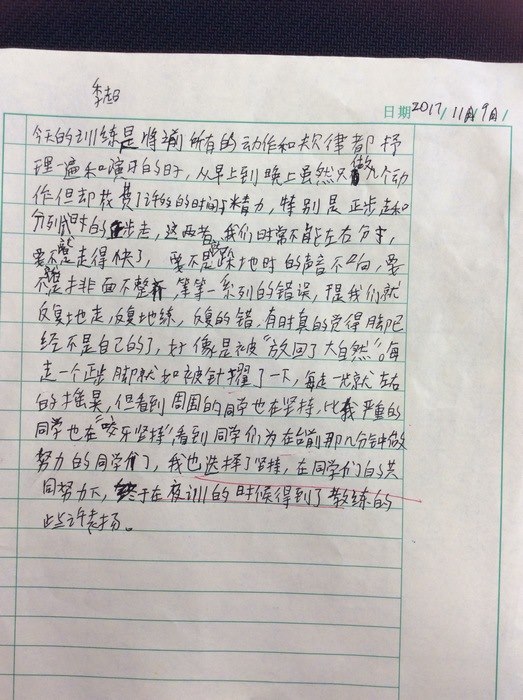 季超
日期 2017/11月9日/
今天的训练是将前所有的动作和纪律都抒
理一遍和演习的时,从早上到晚上虽然只做几个动
作但却花费了许多的时间与精力,特别是正步走和
分列式时的正步走,这两者我们时常不能左右分寸,
要不就走得快了,要不就是跺地时的声音不如向,要
不就是排面不整齐,等等一系列的错误,提我们就
反复地走,反复地练,反复的错,有时真的觉得脚已
经不是自己的了,好像是被“放回了大自然”。每
走一个正步脚就如被针扎了一下,每走一步就左右
的摇晃,但看到周围的同学也在坚持,比我严重的
同学也在“咬牙坚持”,看到同学们为在台前那几分钟做
努力的同学们,我也选择了坚持,在同学们的共
同努力下,终于在夜训的时候得到了教练的
些许表扬。